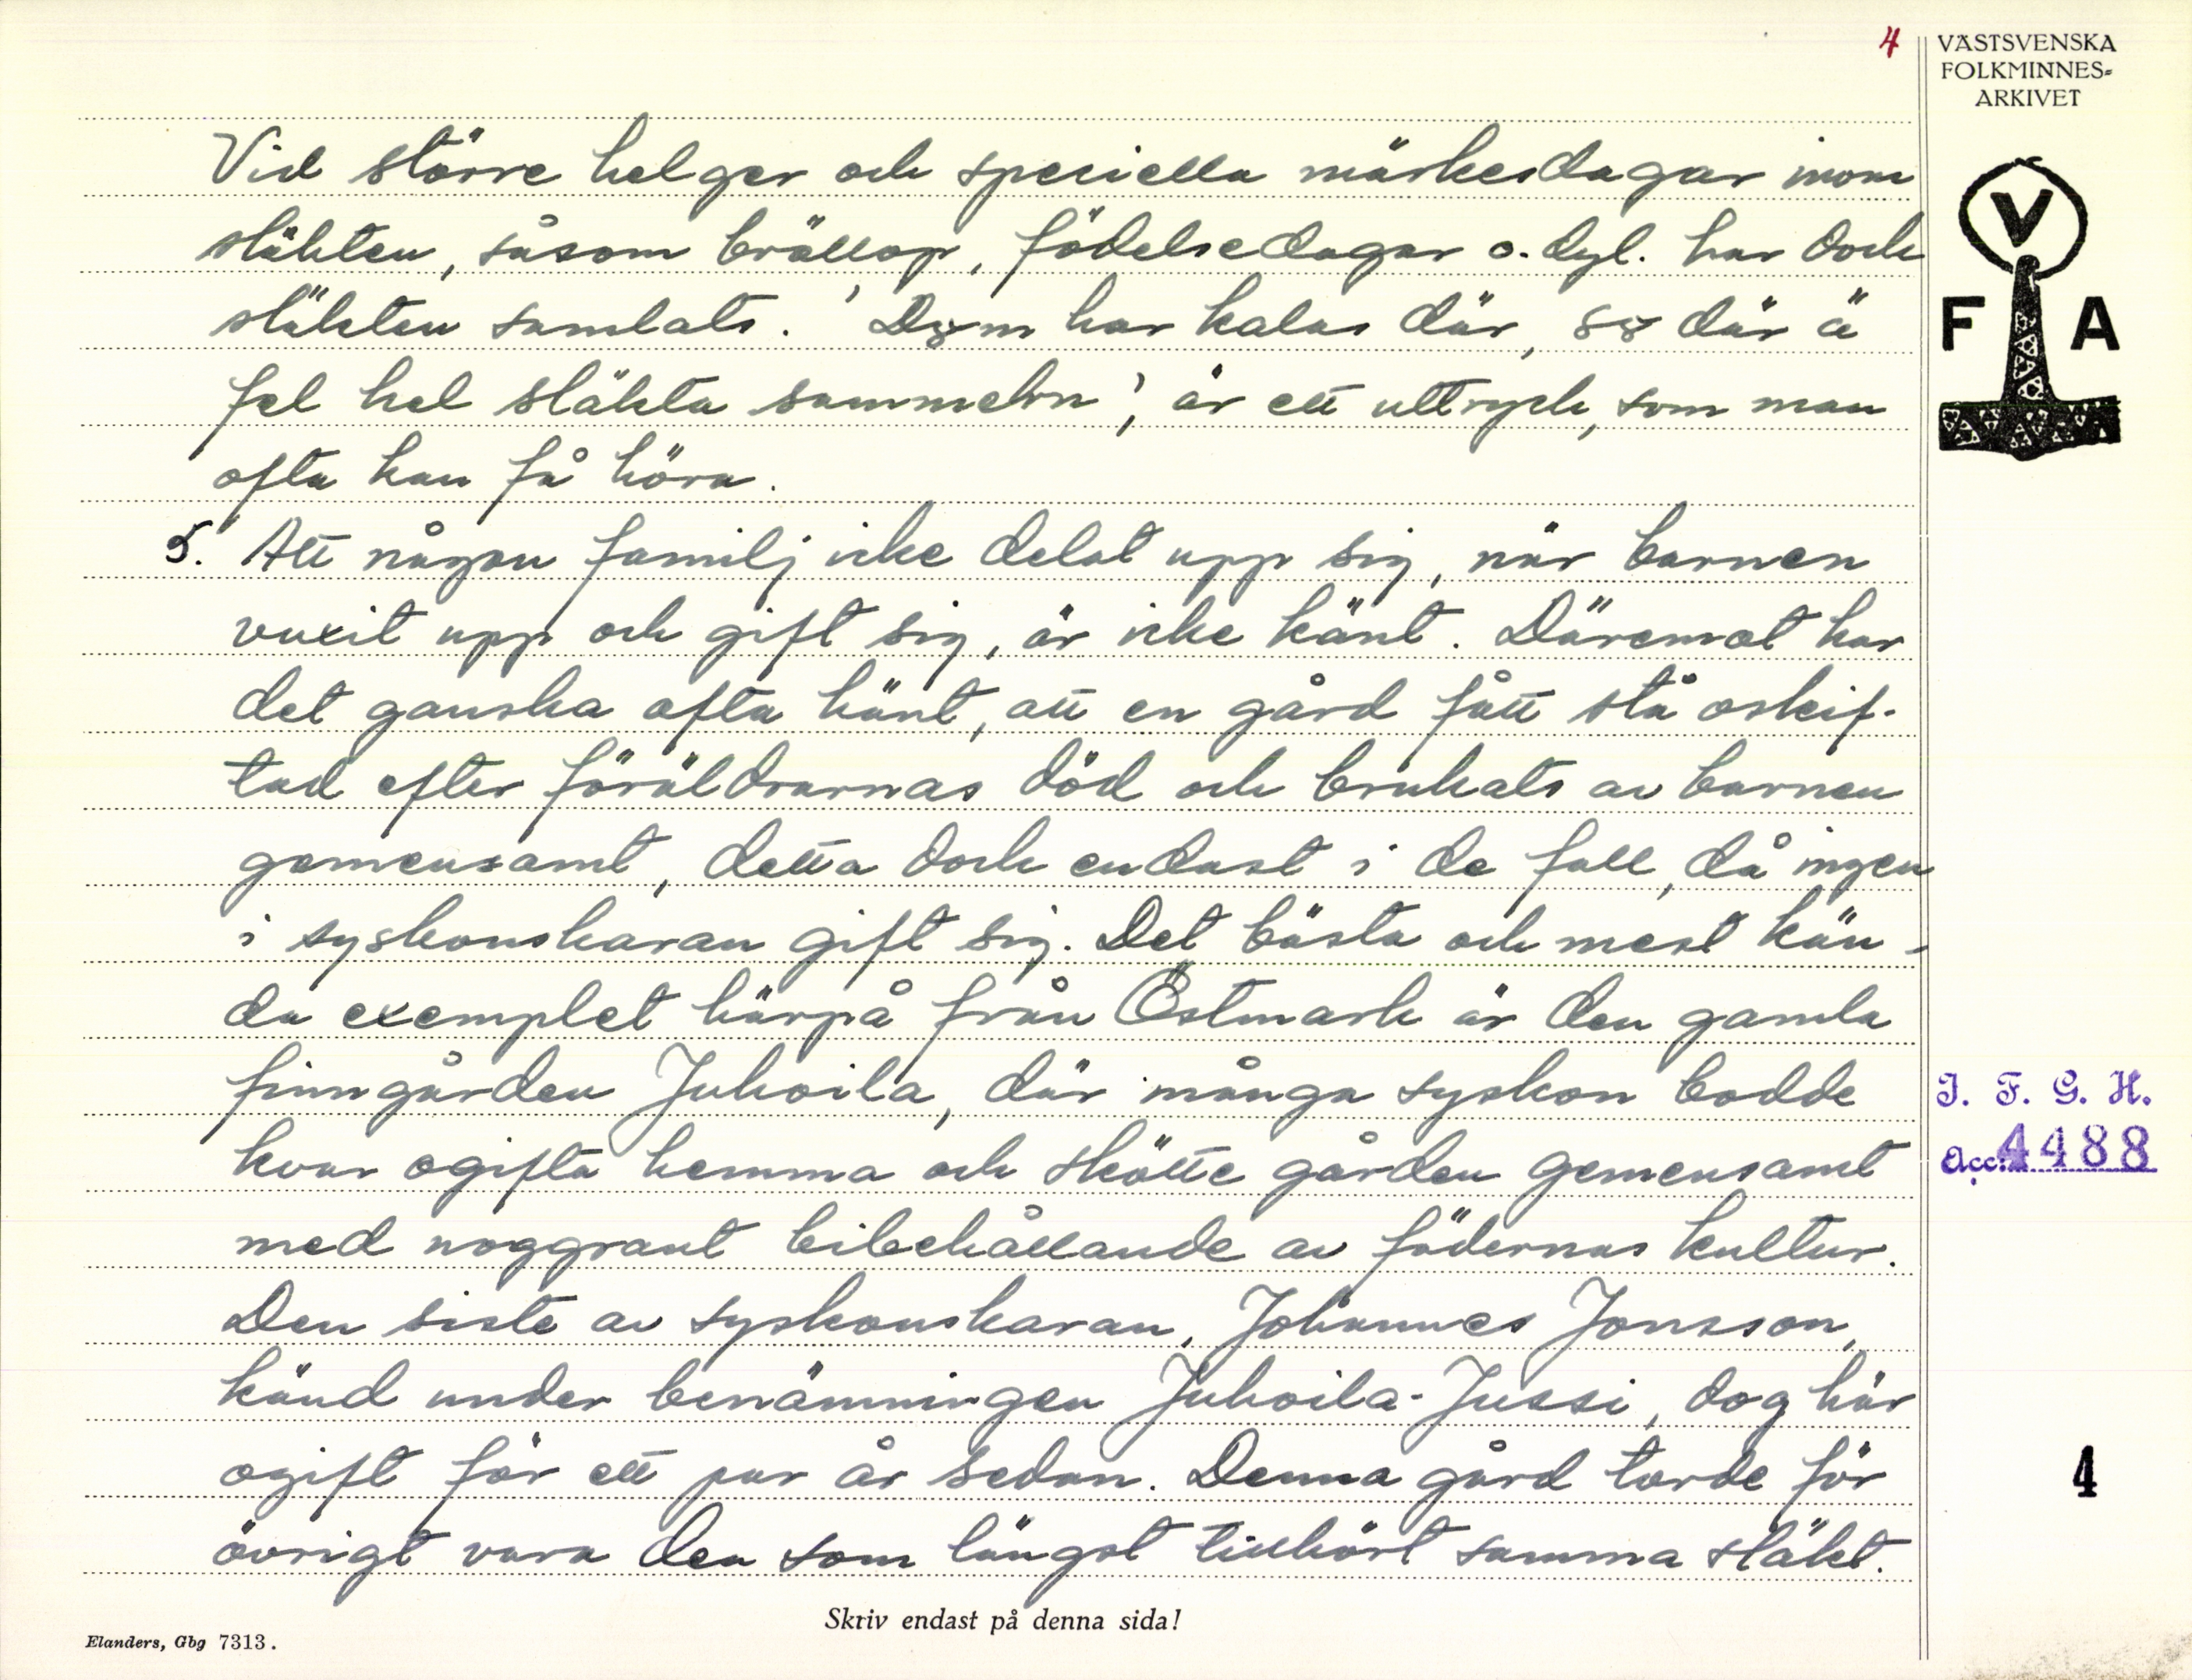 4
VÄSTSVENSKA
FOLKMINNES-
ARKIVET
V
F A
Vid större helger och speciella märkesdagar inom
släkten, såsom bröllop, födelsedagar o. dyl. har dock
släkten samlats. 'Dom har kalas där, so där ä
fel hel släkta sammeln', är ett uttryck, som man
ofta kan få höra.
5. Att någon familj icke delat upp sig, när barnen
vuxit upp och gift sig, är icke känt. Däremot har
det ganska ofta hänt, att en gård fått stå oskif-
tad efter föräldrarnas död och brukats av barnen
gemensamt, detta dock endast i de fall, då ingen
i syskonskaran gift sig. Det bästa och mest kän-
da exemplet härpå från Östmark är den gamla
finngården Juhoila, där många syskon bodde
kvar ogifta hemma och skötte gården gemensamt
med noggrant bibehållande av fädernas kultur.
Den siste av syskonskaran, Johannes Jonsson,
känd under benämningen Juhoila-Jussi, dog här
ogift för ett par år sedan. Denna gård torde för
övrigt vara den som längst tillhört samma släkt.
I. F. G. H.
Acc: 4488
4
Skriv endast på denna sida!
Elanders, Gbg 7313.